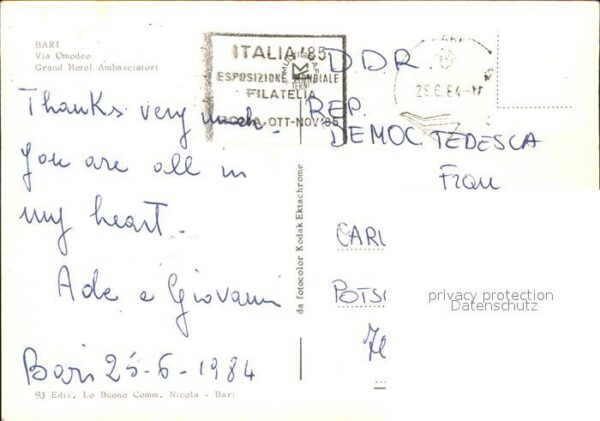 BARI
Via Omodeo
Grand Hotel Ambasciatori
ITALIA '85
ESPOSIZIONE MONDIALE
FILATELIA
ROMA, OTT-NOV 85
Thanks very much.
you are all in
my heart.
Ade e Giovanni
Bari 25-6-1984
93 Ediz. Lo Buono Comm. Nicola - Bari
da fotocolor Kodak Ektachrome
D.D.R.
REP.
DEMOC. TEDESCA
Frau
CARL
POTS
privacy protection
Datenschutz